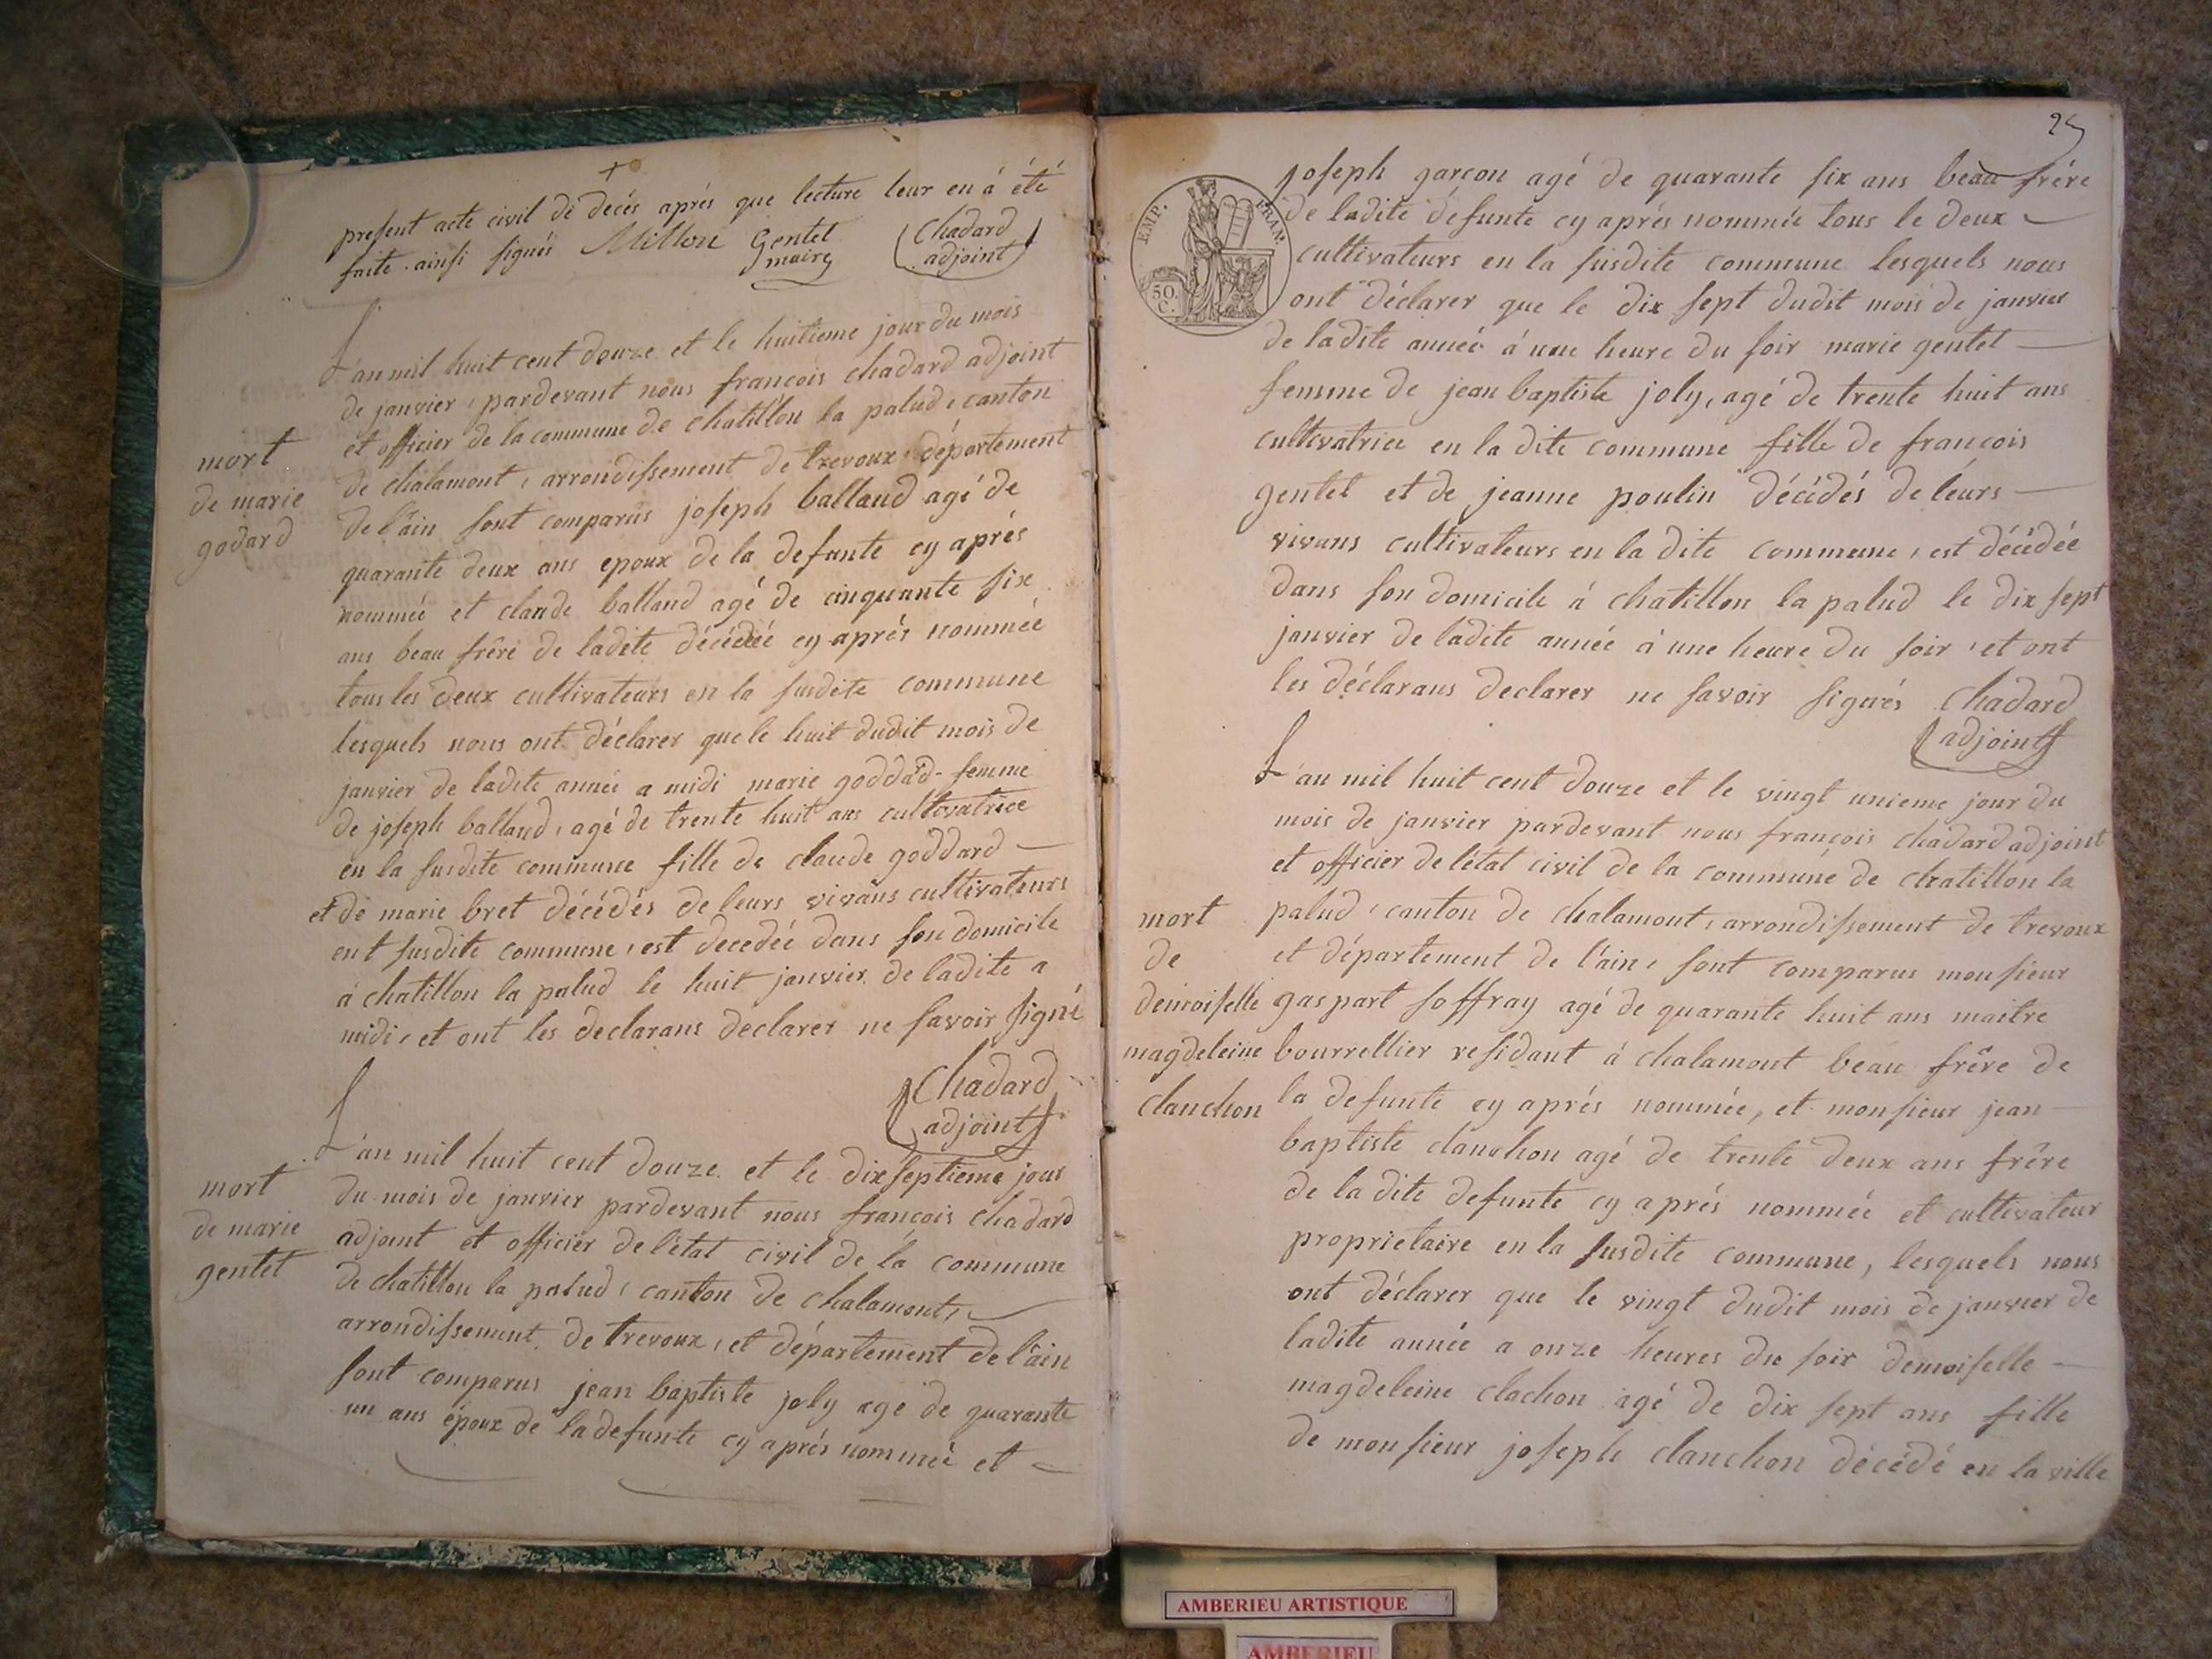 present acte civil de decés aprés que lecture leur en á été
faite ainsi signés Millon Gentet maire Chadard adjoint
L'an mil huit cent douze et le huitieme jour du mois
de janvier, pardevant nous francois chadard adjoint
et officier de la commune de chatillon la palud, canton
de chalamont, arrondissement de trevoux, département
de l'ain sont comparus joseph balland agé de
quarante deux ans epoux de la defunte cy aprés
nommée et claude balland agé de cinquante six
ans beau frére de ladite décédée cy aprés nommée
tous les deux cultivateurs en la susdite commune
lesquels nous ont déclarer que le huit dudit mois de
janvier de ladite année a midi marie goddard femme
de joseph balland, agé de trente huit ans cultivatrice
en la susdite commune fille de claude goddard
et de marie bret décédés de leurs vivans cultivateurs
ent susdite commune, est decedée dans son domicile
á chatillon la palud le huit janvier de ladite a
midi, et ont les declarans declarer ne savoir signé
Chadard
adjoint
mort
de marie
godard
L'an mil huit cent douze et le dix septieme jour
du mois de janvier pardevant nous francois chadard
adjoint et officier de l'état civil de la commune
de chatillon la palud, canton de chalamont,
arrondissement de trevoux, et département de l'ain
sont comparus jean baptiste joly agé de quarante
un ans époux de la defunte cy aprés nommée et
mort
de marie
gentet
25
EMP. FRAN.
50 C.
joseph garcon agé de quarante six ans beau frére
de ladite défunte cy aprés nommée tous le deux
cultivateurs en la susdite commune lesquels nous
ont déclarer que le dix sept dudit mois de janvier
de ladite année á une heure du soir marie gentet
femme de jean baptiste joly, agé de trente huit ans
cultivatrice en la dite commune fille de francois
gentet et de jeanne poulin décédés de leurs
vivans cultivateurs en la dite commune, est décédée
dans son domicile á chatillon la palud le dix sept
janvier de ladite année á une heure du soir, et ont
les déclarans declarer ne savoir signés Chadard
adjoint
L'an mil huit cent douze et le vingt unieme jour du
mois de janvier pardevant nous francois chadard adjoint
et officier de l'état civil de la commune de chatillon la
palud, canton de chalamont, arrondissement de trevoux
et département de l'ain, sont comparus monsieur
gaspart soffray agé de quarante huit ans maitre
bourrellier residant á chalamont beau frére de
la defunte cy aprés nommée, et monsieur jean
baptiste clanchon agé de trente deux ans frére
de la dite defunte cy aprés nommée et cultivateur
proprietaire en la susdite commune, lesquels nous
ont déclarer que le vingt dudit mois de janvier de
ladite année a onze heures du soir demoiselle
magdeleine clachon agé de dix sept ans fille
de monsieur joseph clanchon décédé en la ville
mort
de
demoiselle
magdeleine
clanchon
AMBERIEU ARTISTIQUE
AMBERIEU